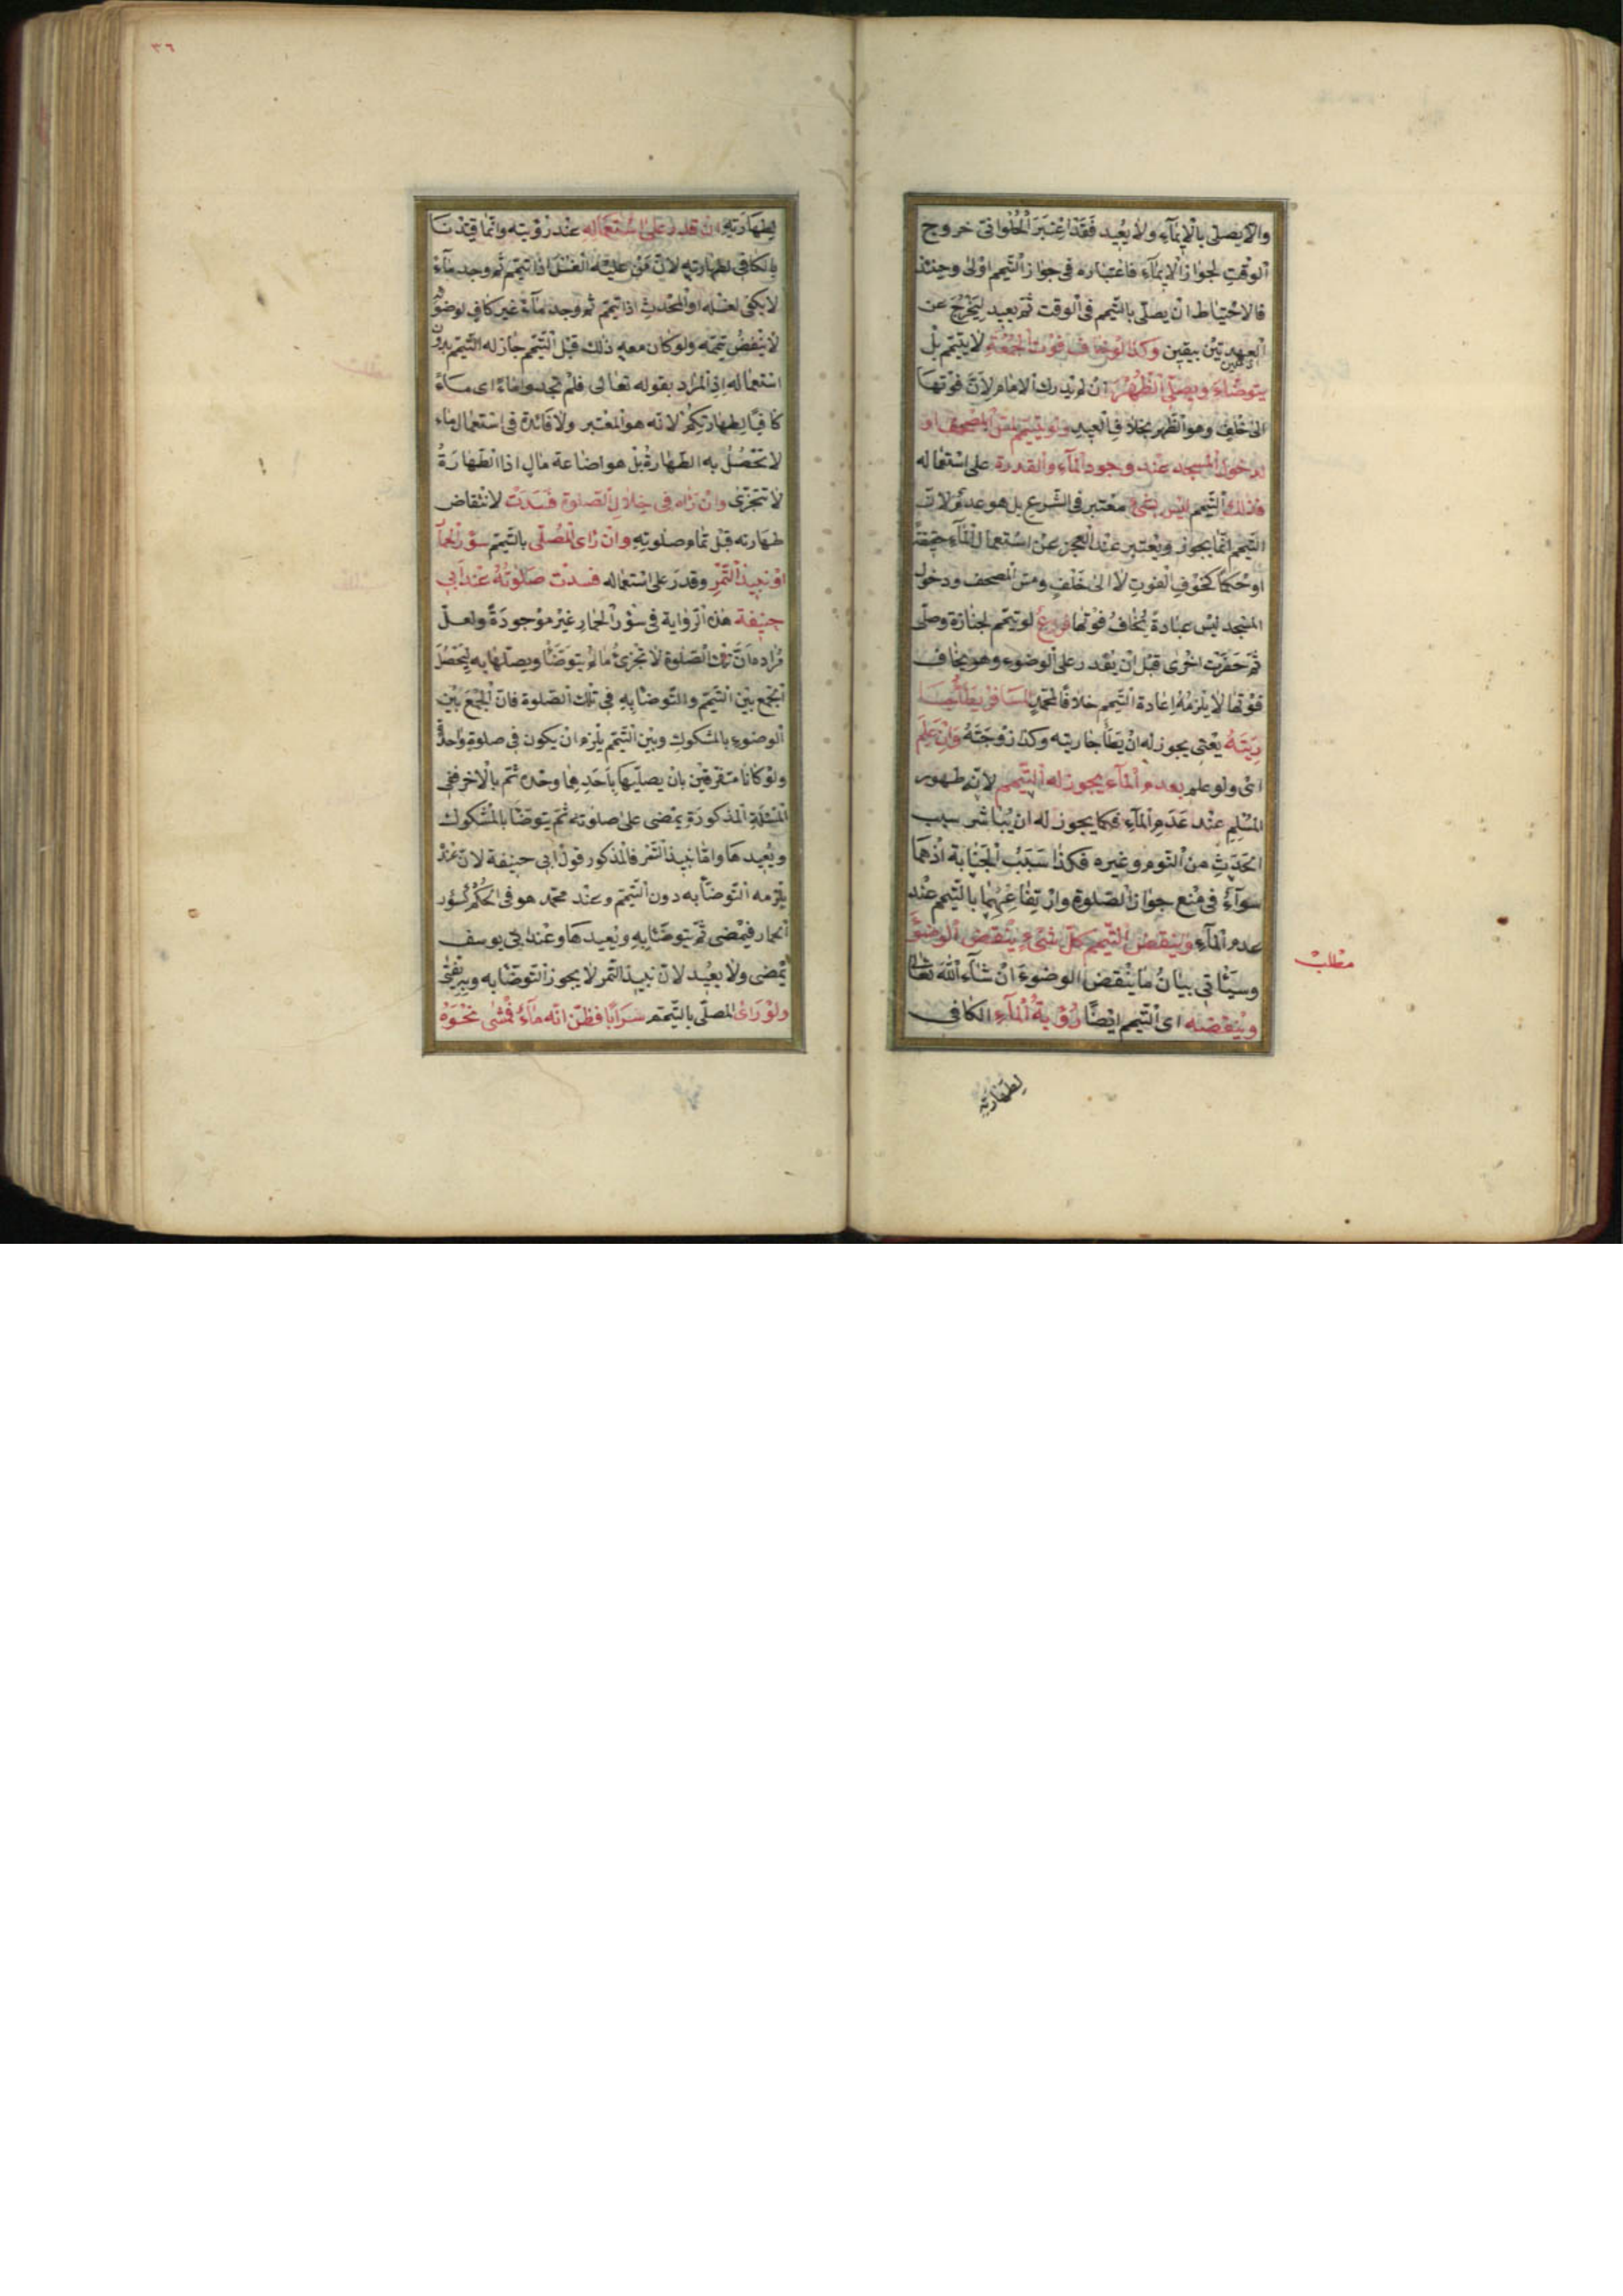 والا يصلى بالايماء ولا يعيد فقد اعتبر الحلوانى خروج
الوقت لجواز الايماء فاعتباره فى جواز التيمم اولى وحينئذ
فالاحتياط ان يصلى بالتيمم فى الوقت ثم يعيد ليخرج عن
العهدتين بيقين وكذا لو خاف فوت الجمعة لا يتيمم بل
يتوضاء ويصلى الظهر ان لم يدرك الامام لان فوتها
الى خلف وهو الظهر بخلاف العيد ولو تيمم لمس المصحف او
لدخول المسجد عند وجود الماء والقدرة على استعماله
فذلك التيمم ليس بشئ معتبر فى الشرع بل هو عدم لان
التيمم انما يجوز ويعتبر عند العجز عن استعمال الماء حقيقة
او حكما كخوف الفوت لا الى خلف ومس المصحف ودخول
المسجد ليس عبادة يخاف فوتها فرع لو تيمم لجنازة وصلى
ثم حضرت اخرى قبل ان يقدر على الوضوء وهو يخاف
فوتها لا يلزمه اعادة التيمم خلافا لمحمد المسافر يطأ جا
ريته يعنى يجوز له ان يطأ جاريته وكذا زوجته وان علم
اى ولو علم بعدم الماء يجوز له التيمم لانه طهور
المسلم عند عدم الماء فكما يجوز له ان يباشر سبب
الحدث من النوم وغيره فكذا سبب الجنابة اذ هما
سواء فى منع جواز الصلوة وارتفاعهما بالتيمم عند
عدم الماء وينقض التيمم كل شئ ينقض الوضوء
وسيأتى بيان ما ينقض الوضوء ان شاء الله تعالى
وينقضه اى التيمم ايضا رؤية الماء الكافى
لطهارته
مطلب
٣٦
لطهارته ان قدر على استعماله عند رؤيته وانما قيدنا
بالكافى لطهارته لان من عليه الغسل اذا تيمم ثم وجد ماء
لا يكفى لغسله او المحدث اذا تيمم ثم وجد ماء غير كاف لوضوئه
لا ينقض تيممه ولو كان معه ذلك قبل التيمم جاز له التيمم بدون
استعماله اذ المراد بقوله تعالى فلم تجدوا ماء اى ماء
كافيا لطهارتكم لانه هو المعتبر ولا فائدة فى استعمال ماء
لا تحصل به الطهارة بل هو اضاعة مال اذ الطهارة
لا تتجزى وان رآه فى خلال الصلوة فسدت لانتقاض
طهارته قبل تمام صلوته وان رأى المصلى بالتيمم سؤر الحمار
او نبيذ التمر وقدر على استعماله فسدت صلوته عند ابى
حنيفة هذه الرواية فى سؤر الحمار غير موجودة ولعل
مراده ان تلك الصلوة لا تجزئ ما لم يتوضأ ويصليها به ليحصل
الجمع بين التيمم والتوضأ به فى تلك الصلوة فان الجمع بين
الوضوء بالمشكوك وبين التيمم يلزم ان يكون فى صلوة واحدة
ولو كانا متفرقين بان يصليها باحدهما وحده ثم بالاخر ففى
المسئلة المذكورة يمضى على صلوته ثم يتوضأ بالمشكوك
ويعيدها واما نبيذ التمر فالمذكور قول ابى حنيفة لان عنده
يلزمه التوضأ به دون التيمم وعند محمد هو فى الحكم كسؤر
الحمار فيمضى ثم يتوضأ به ويعيدها وعند ابى يوسف
يمضى ولا يعيد لان نبيذ التمر لا يجوز التوضأ به وبه يفتى
ولو رأى المصلى بالتيمم سرابا فظن انه ماء فمشى نحوه